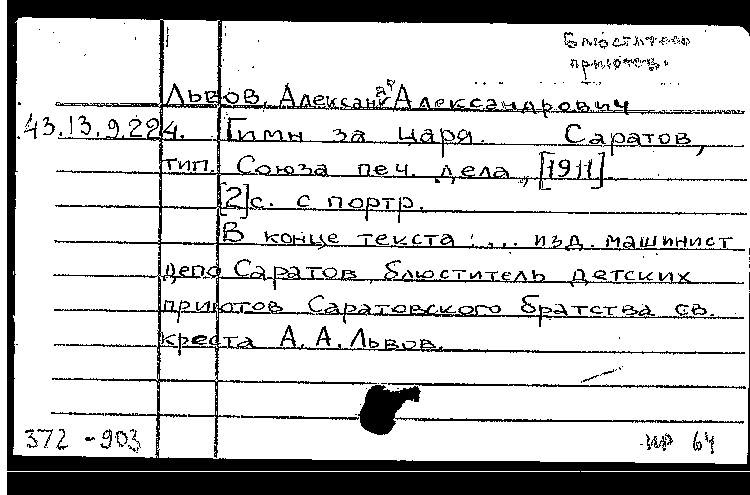 блюститель
приютов
Львов, Александр Александрович
43.13.9.224. Гимн за царя. Саратов,
тип. Союза печ. дела, [1911].
[2]с. с портр.
В конце текста: ... изд. машинист
депо Саратов, блюститель детских
приютов Саратовского братства св.
креста А.А. Львов.
372-903 64